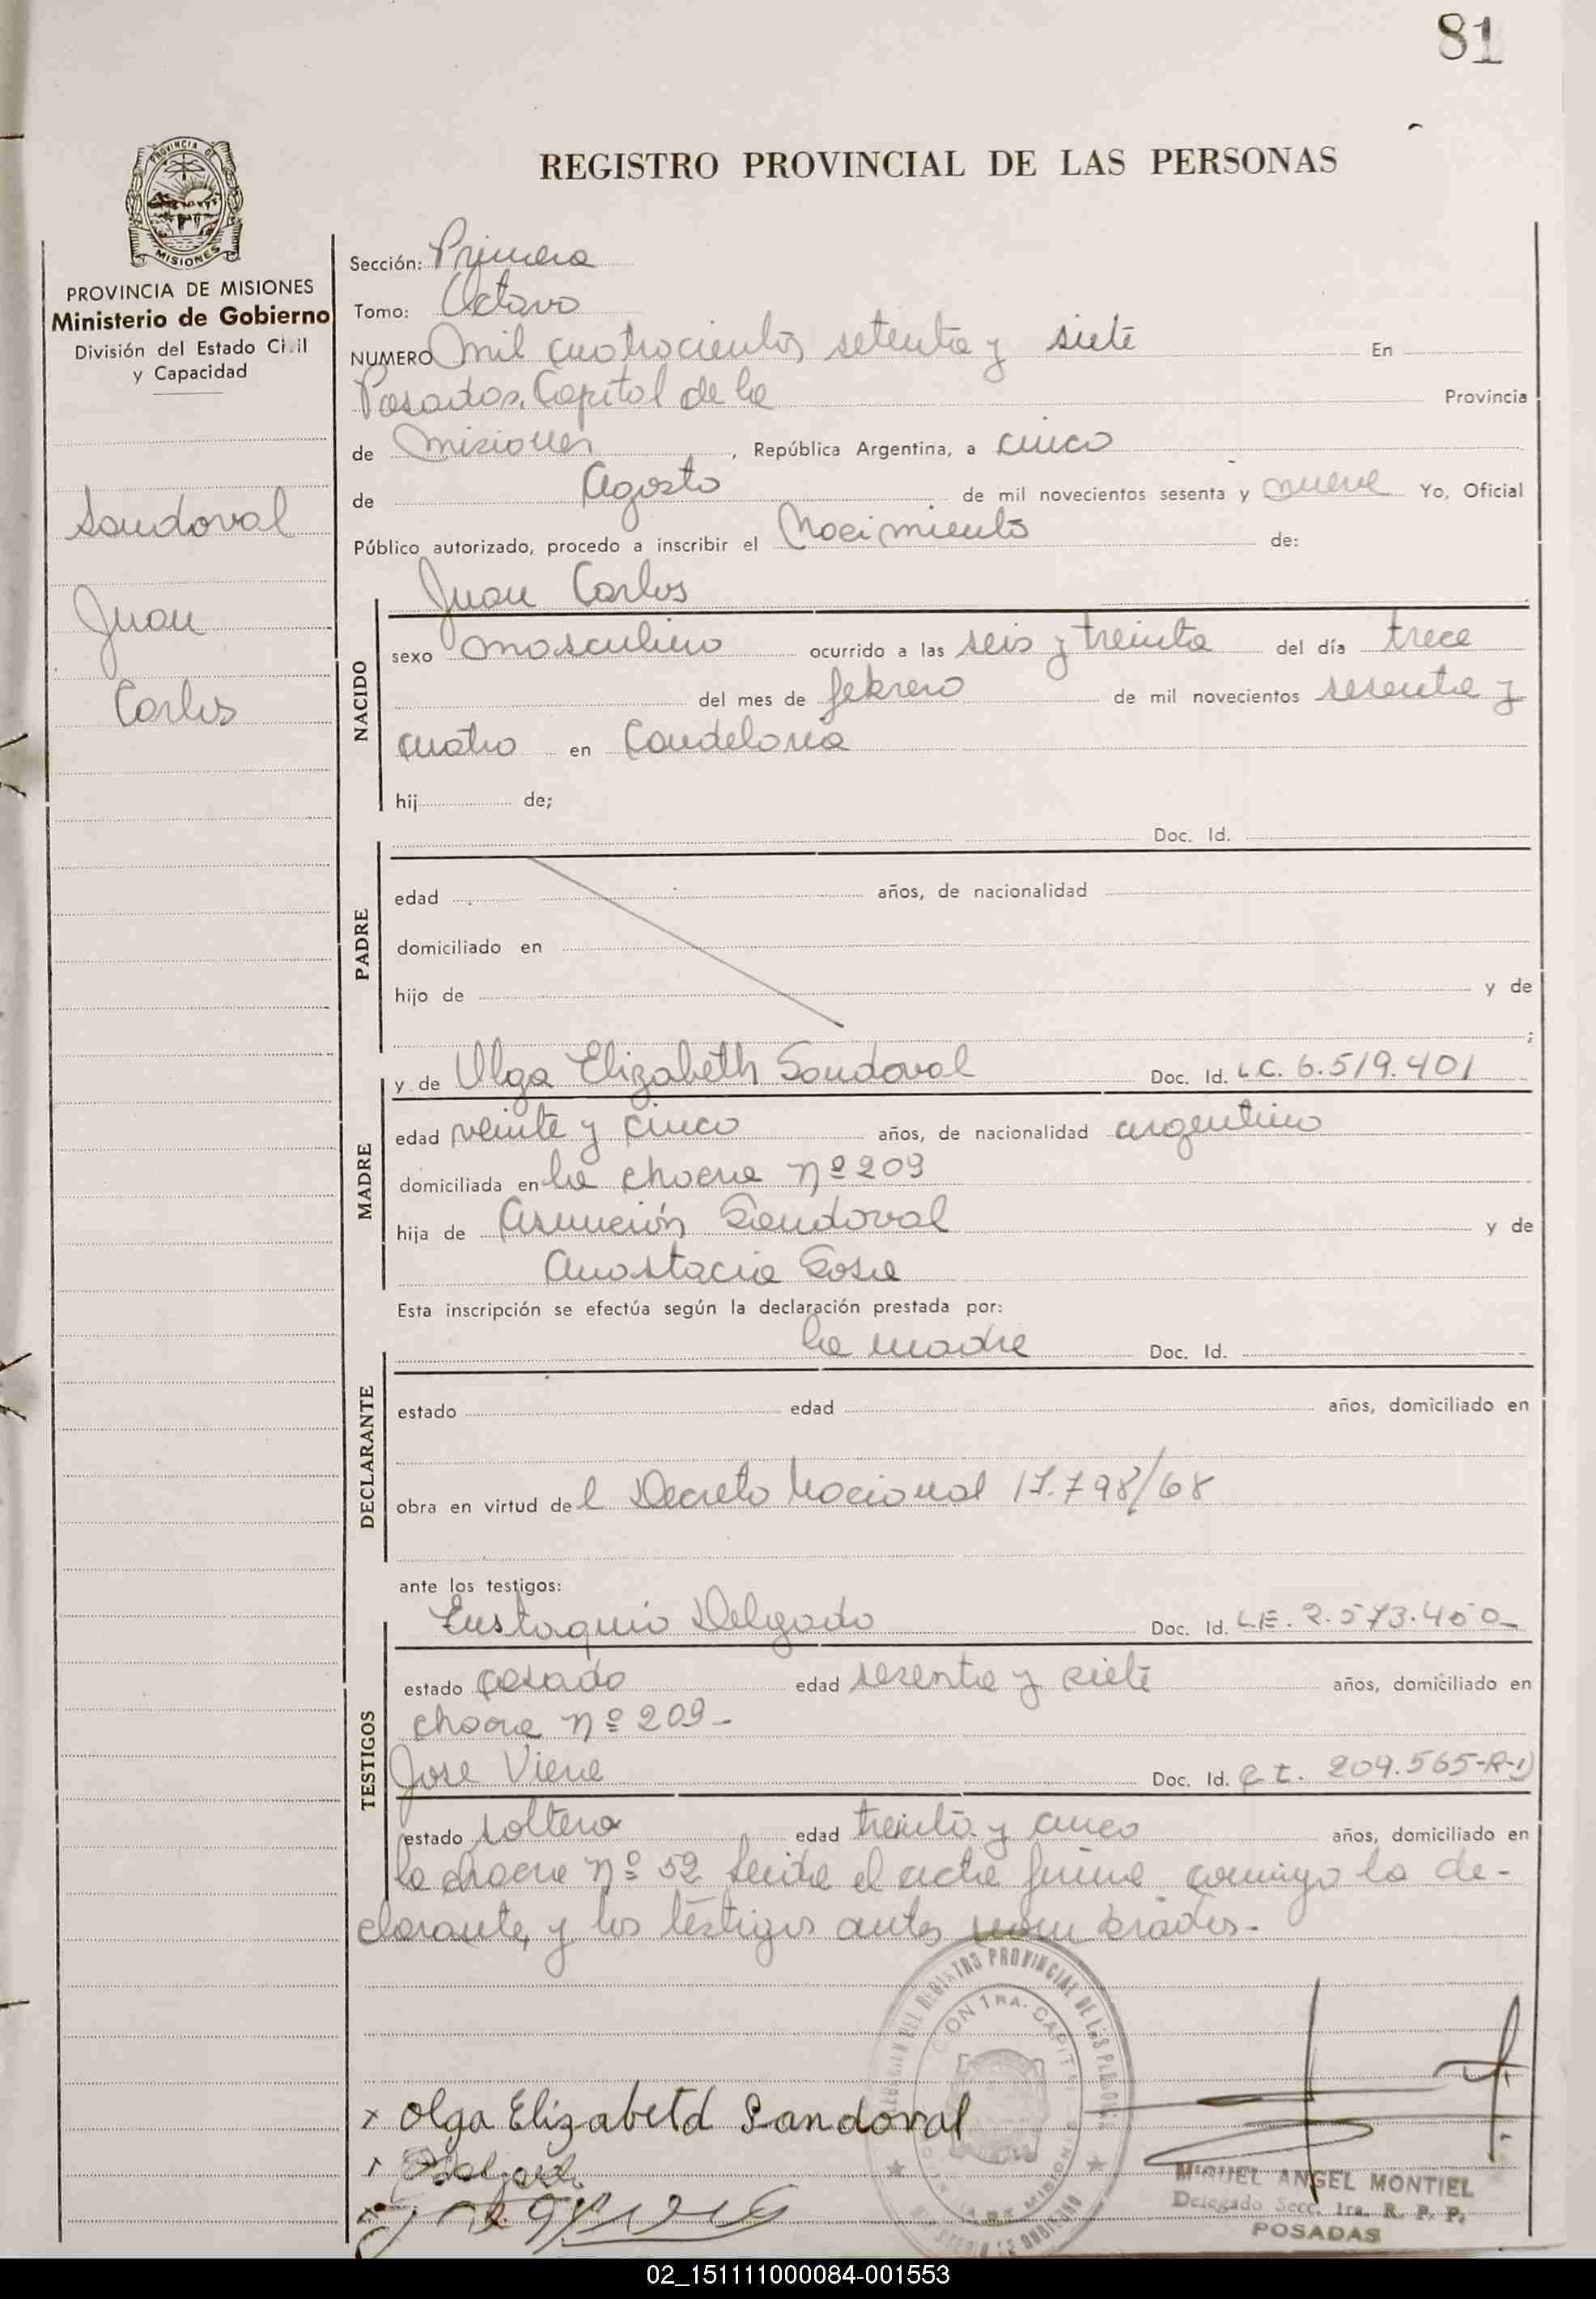 81
REGISTRO PROVINCIAL DE LAS PERSONAS
PROVINCIA DE MISIONES
PROVINCIA DE MISIONES
Ministerio de Gobierno
División del Estado Civil
y Capacidad
Sandoval
Juan
Carlos
Sección: Primera
Tomo: Octavo
NUMERO Mil cuatrocientos setenta y siete En
Posadas, Capital de la Provincia
de Misiones, República Argentina, a cinco
de Agosto de mil novecientos sesenta y nueve Yo, Oficial
Público autorizado, procedo a inscribir el Nacimiento de:
Juan Carlos
NACIDO
sexo masculino ocurrido a las seis y treinta del día trece
del mes de febrero de mil novecientos sesenta y
cuatro en Candelaria
hij de;
Doc. Id.
PADRE
edad años, de nacionalidad
domiciliado en
hijo de y de
;
MADRE
y de Olga Elizabeth Sandoval Doc. Id. L.C. 6.519.401
edad veinte y cinco años, de nacionalidad argentino
domiciliada en la chacra nº 209
hija de Asunción Sandoval y de
Anastacia Sosa
Esta inscripción se efectúa según la declaración prestada por:
la madre Doc. Id.
DECLARANTE
estado edad años, domiciliado en
obra en virtud de l Decreto Nacional 17.798/68
ante los testigos:
Eustaquio Delgado Doc. Id. L.E. 2.573.450
TESTIGOS
estado casado edad sesenta y siete años, domiciliado en
chacra nº 209-
Jose Viene Doc. Id. 209.565-R-1)
estado soltero edad treinta y cinco años, domiciliado en
la chacra nº 52 Leida el acta firma conmigo la de-
clarante, y los testigos antes nombrados.-
x Olga Elizabetd Sandoval
MIGUEL ANGEL MONTIEL
Delegado Secc. 1ra. R. P. P.
POSADAS
02_151111000084-001553